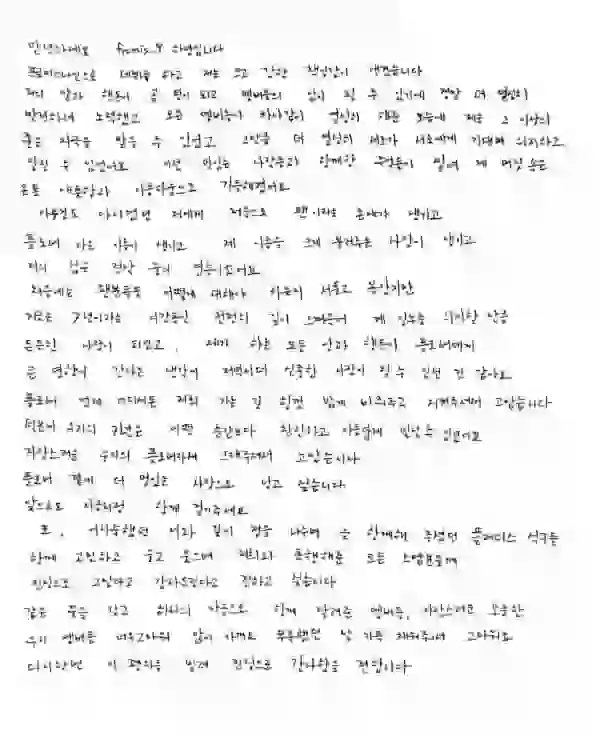 안녕하세요 fromis_9 하영입니다
프로미스나인으로 데뷔를 하고 저는 크고 강한 책임감이 생겼습니다
저의 말과 행동이 곧 팀이 되고 멤버들의 삶이 될 수 있기에 정말 더 열심히
발전하며 노력했고 모든 멤버들이 하나같이 열심히 해준 모습에 저는 그 이상의
좋은 자극을 받을 수 있었고 그만큼 더 열심히 서로가 서로에게 기대며 의지하고
있을 수 있었어요 이런 멋있는 나날들과 함께한 추억들이 쌓여 제 머릿속은
온통 애틋함과 아름다움으로 기득해졌어요
아무것도 아니었던 저에게 처음으로 팬이라는 존재가 생기고
플로버 라는 이름이 생기고 제 이름을 크게 불러주는 사람이 생기고
저의 삶은 정말 꿈의 연속이었어요
처음에는 팬분들을 어떻게 대해야 하는지 서툴고 몰랐지만
지금은 7년이라는 시간동안 천천히 깊이 스며들어 제 인생을 의지할 만큼
든든한 사랑이 되었고, 제가 하는 모든 말과 행동이 플로버에게
큰 영향이 간다는 생각에 저역시 더 신중한 사람이 될 수 있었던 것 같아요
플로버 언제 어디서든 저희 가는 길 힘껏 밝게 비춰주고 지켜주셔서 고맙습니다
덕분에 우리의 기억은 어떤 순간보다 찬란하고 아름답게 빛날 수 있었어요
자랑스러운 우리의 플로버자체 그래주셔서 고맙습니다
플로버 곁에 더 멋있는 사람으로 남고 싶습니다.
앞으로도 지금처럼 함께 걸어주세요
또, 연습생때부터 같이 정을 나누며 늘 함께해 주셨던 플레디스 식구들
함께 고민하고 울고 웃으며 저희와 동행해준 모든 스탭분들께
진심으로 고맙다고 감사드린다고 전하고 싶습니다
같은 꿈을 갖고 하나의 마음으로 함께 달려준 멤버들, 사랑스러운 소중한
우리 멤버들 너무고마워 많이 아끼고 부족했던 날 가득 채워주어서 고마워요
다시한번 이 편지를 빌려 진심으로 감사함을 전합니다